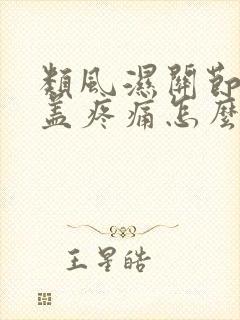 類風濕關節
蓋疼痛怎麼
王星皓